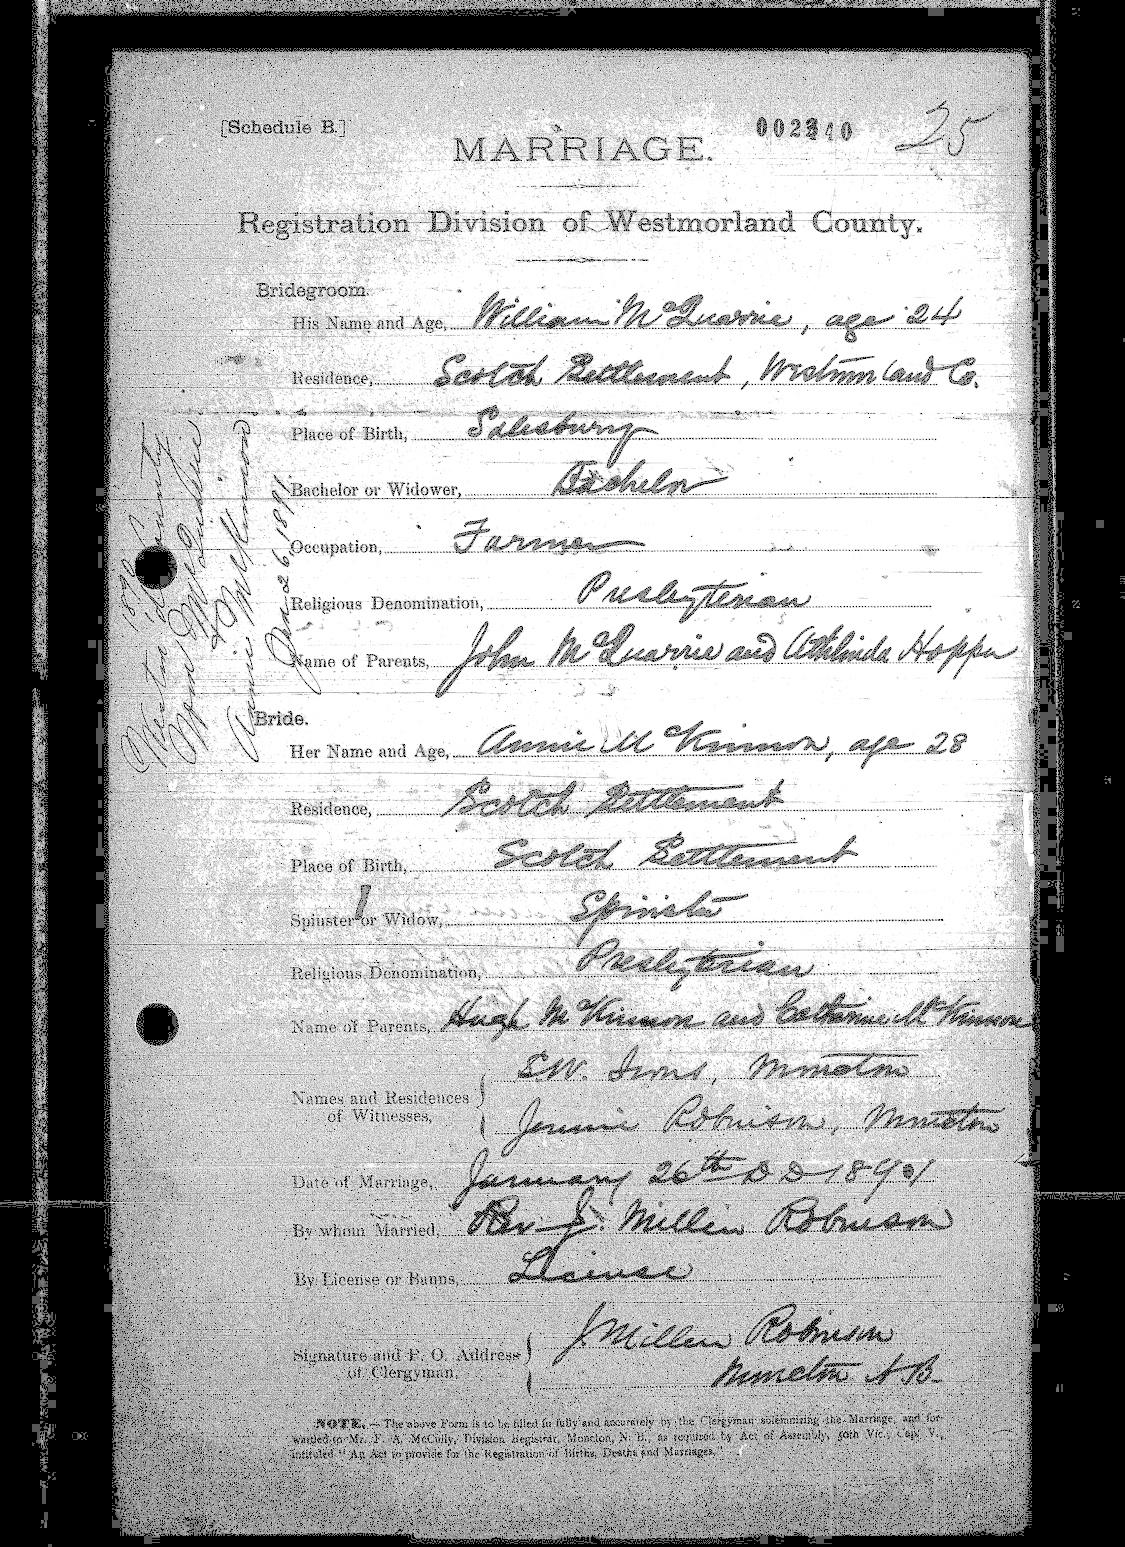 [Schedule B.]
002340
25
MARRIAGE.
Registration Division of Westmorland County.
Bridegroom.
His Name and Age, William McQuarrie, age 24
Residence, Scotch Settlement, Westmorland Co.
Place of Birth, Salesbury
Bachelor or Widower, Bachelor
Occupation, Farmer
Religious Denomination, Presbyterian
Name of Parents, John McQuarrie and Athlinda Hopper
Bride.
Her Name and Age, Annie McKinnon, age 28
Residence, Scotch Settlement
Place of Birth, Scotch Settlement
Spinster or Widow, Spinster
Religious Denomination, Presbyterian
Name of Parents, Hugh McKinnon and Catherine McKinnon
Names and Residences of Witnesses,
E.W. Irons, Moncton
Jennie Robinson, Moncton
Date of Marriage, January 26th A D 1891
By whom Married, Rev J. Millen Robinson
By License or Banns, License
Signature and P. O. Address of Clergyman,
J. Millen Robinson
Moncton N B.
NOTE.—The above Form is to be filled in fully and accurately by the Clergyman solemnizing the Marriage, and for-
warded to Mr. F. A. McCully, Division Registrar, Moncton, N. B., as required by Act of Assembly, 50th Vic., Cap. V.,
intituled "An Act to provide for the Registration of Births, Deaths and Marriages."
County
McQuarrie
&
Annie McKinnon
Jan 26, 1891